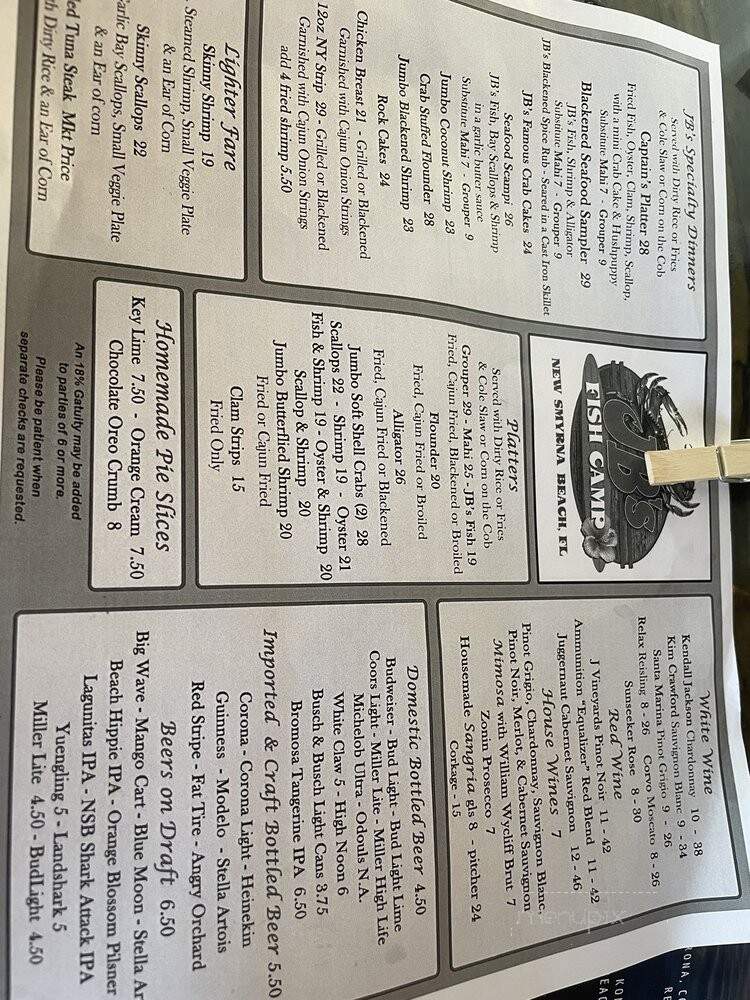 JB's Specialty Dinners
Served with Dirty Rice or Fries
& Cole Slaw or Corn on the Cob
Captain's Platter 28
Fried Fish, Oyster, Clam, Shrimp, Scallop,
with a mini Crab Cake & Hushpuppy
Substitute Mahi 7 - Grouper 9
Blackened Seafood Sampler 29
JB's Fish, Shrimp & Alligator
Substitute Mahi 7 - Grouper 9
JB's Blackened Spice Rub - Seared in a Cast Iron Skillet
JB's Famous Crab Cakes 24
Seafood Scampi 26
JB's Fish, Bay Scallops & Shrimp
in a garlic butter sauce
Substitute Mahi 7 - Grouper 9
Jumbo Coconut Shrimp 23
Crab Stuffed Flounder 28
Jumbo Blackened Shrimp 23
Rock Cakes 24
Chicken Breast 21 - Grilled or Blackened
Garnished with Cajun Onion Strings
12oz NY Strip 29 - Grilled or Blackened
Garnished with Cajun Onion Strings
add 4 fried shrimp 5.50
Lighter Fare
Skinny Shrimp 19
Steamed Shrimp, Small Veggie Plate
& an Ear of Corn
Skinny Scallops 22
Garlic Bay Scallops, Small Veggie Plate
& an Ear of corn
Tuna Steak Mkt Price
Dirty Rice & an Ear of Corn
JB's
FISH CAMP
NEW SMYRNA BEACH, FL
Platters
Served with Dirty Rice or Fries
& Cole Slaw or Corn on the Cob
Grouper 29 - Mahi 25 - JB's Fish 19
Fried, Cajun Fried, Blackened or Broiled
Flounder 20
Fried, Cajun Fried or Broiled
Alligator 26
Fried, Cajun Fried or Blackened
Jumbo Soft Shell Crabs (2) 28
Scallops 22 - Shrimp 19 - Oyster 21
Fish & Shrimp 19 - Oyster & Shrimp 20
Scallop & Shrimp 20
Jumbo Butterflied Shrimp 20
Fried or Cajun Fried
Clam Strips 15
Fried Only
Homemade Pie Slices
Key Lime 7.50 - Orange Cream 7.50
Chocolate Oreo Crumb 8
An 18% Gatuity may be added
to parties of 6 or more.
Please be patient when
separate checks are requested.
White Wine
Kendall Jackson Chardonnay 10 - 38
Kim Crawford Sauvignon Blanc 9 - 34
Santa Marina Pinot Grigio 9 - 26
Relax Reisling 8 - 26 Corvo Moscato 8 - 26
Sunseeker Rose 8 - 30
Red Wine
J Vineyards Pinot Noir 11 - 42
Ammunition "Equalizer" Red Blend 11 - 42
Juggernaut Cabernet Sauvignon 12 - 46
House Wines 7
Pinot Grigio, Chardonnay, Sauvignon Blanc,
Pinot Noir, Merlot, & Cabernet Sauvignon
Mimosa with William Wycliff Brut 7
Zonin Prosecco 7
Housemade Sangria gls 8 - pitcher 24
Corkage - 15
Domestic Bottled Beer 4.50
Budweiser - Bud Light - Bud Light Lime
Coors Light - Miller Lite - Miller High Life
Michelob Ultra - Odouls N.A.
White Claw 5 - High Noon 6
Busch & Busch Light Cans 3.75
Bromosa Tangerine IPA 6.50
Imported & Craft Bottled Beer 5.50
Corona - Corona Light - Heinekin
Guinness - Modelo - Stella Artois
Red Stripe - Fat Tire - Angry Orchard
Beers on Draft 6.50
Big Wave - Mango Cart - Blue Moon - Stella Ar
Beach Hippie IPA - Orange Blossom Pilsner
Lagunitas IPA - NSB Shark Attack IPA
Yuengling 5 - Landshark 5
Miller Lite 4.50 - BudLight 4.50
menupix